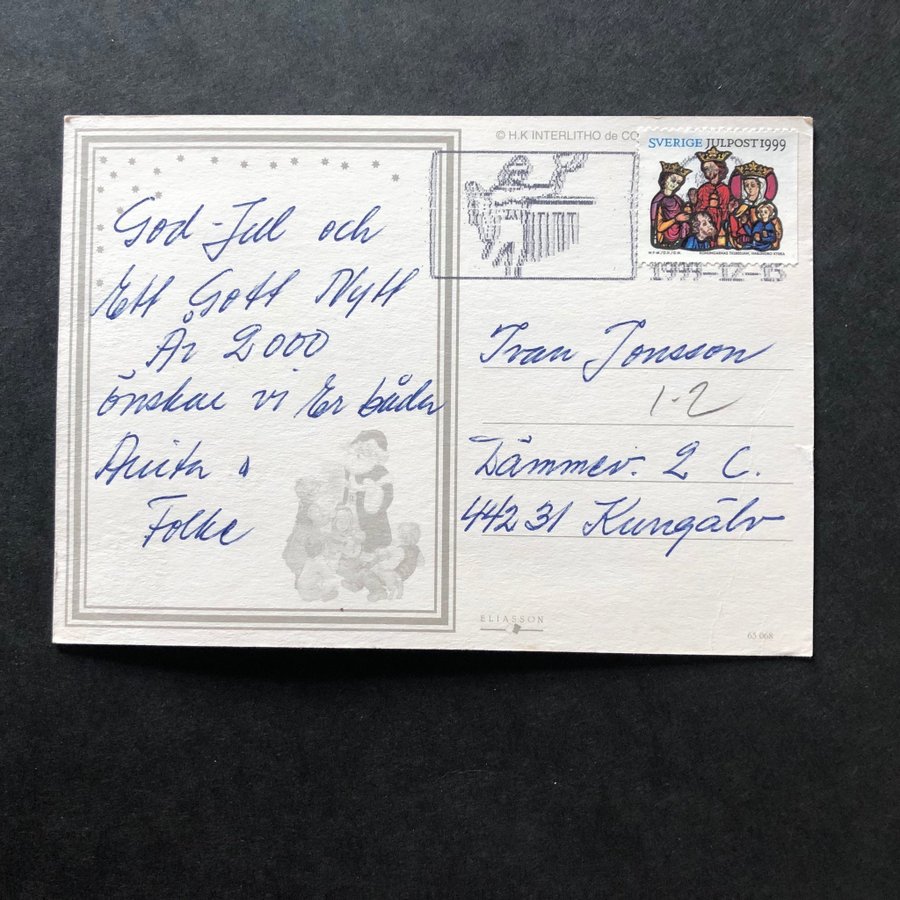 God Jul och
Ett Gott Nytt
År 2000
önskar vi Er båda
Anita &
Folke
© H.K INTERLITHO de CO
SVERIGE JULPOST 1999
1999-12-15
Ivan Jonsson
1-2
Dämmev. 2 C.
442 31 Kungälv
ELIASSON
65 068